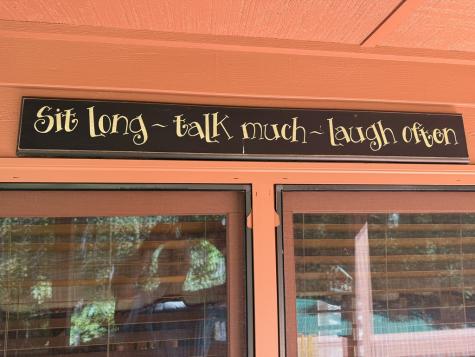 Sit long~talk much~laugh often